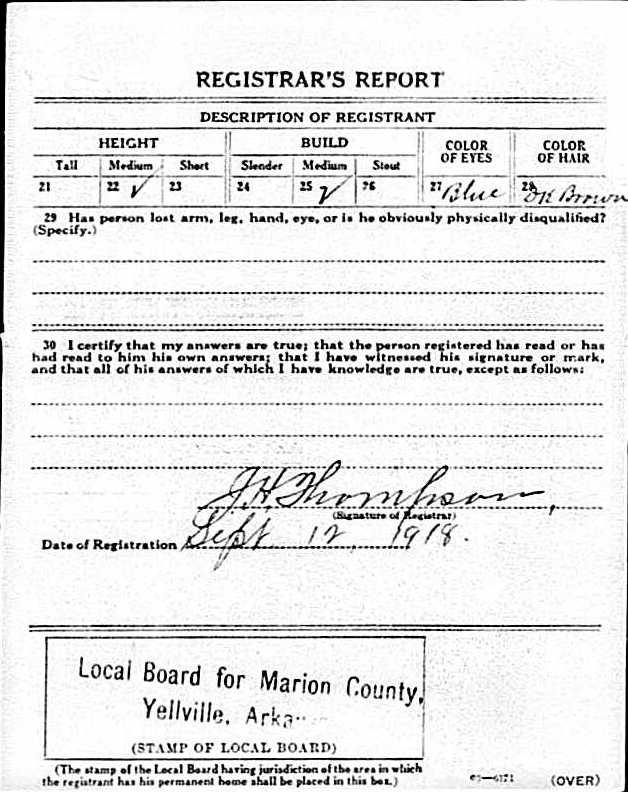 REGISTRAR'S REPORT
DESCRIPTION OF REGISTRANT
HEIGHT BUILD COLOR OF EYES COLOR OF HAIR
Tall Medium Short Slender Medium Stout
21 22 ✓ 23 24 25 ✓ 26 27 Blue 28 DK Brown
29 Has person lost arm, leg, hand, eye, or is he obviously physically disqualified?
(Specify.)
30 I certify that my answers are true; that the person registered has read or has
had read to him his own answers; that I have witnessed his signature or mark,
and that all of his answers of which I have knowledge are true, except as follows:
J. H. Thompson,
(Signature of Registrar)
Date of Registration Sept. 12, 1918.
Local Board for Marion County,
Yellville, Arka
(STAMP OF LOCAL BOARD)
(The stamp of the Local Board having jurisdiction of the area in which
the registrant has his permanent home shall be placed in this box.)
(OVER)